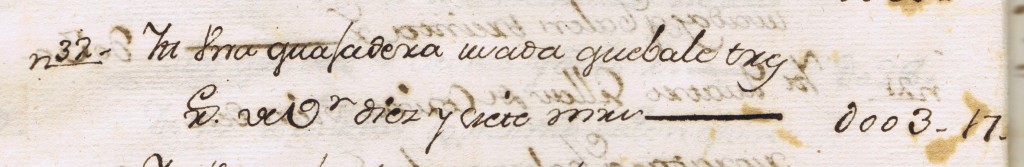 n32- Yt Vna quajadera usada quebale tres
Rs. de Vn diez y siete mrs — d003- 17